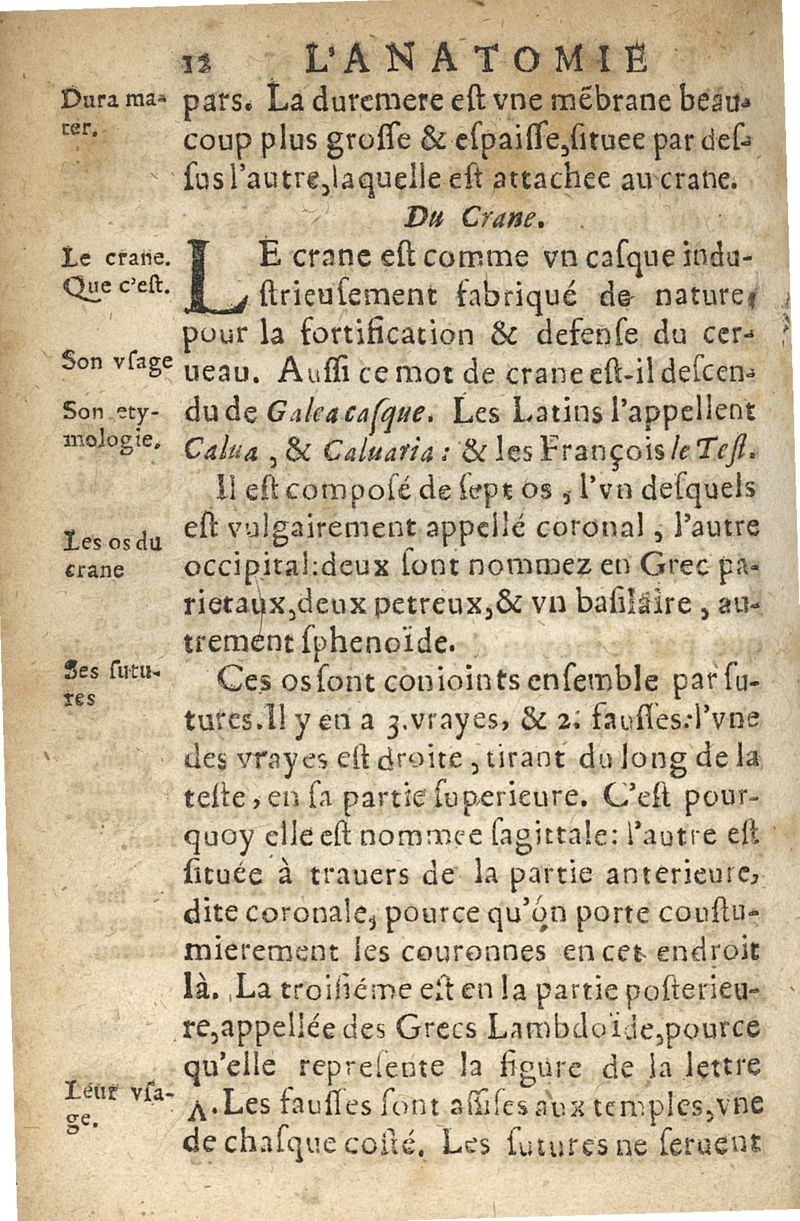 12 L'ANATOMIE
Dura ma-
ter.
pars. La duremere est vne mẽbrane beau-
coup plus grosse & espaisse,situee par des-
sus l'autre,laquelle est attachee au crane.
Du Crane.
Le crane.
Que c'est.
LE crane est comme vn casque indu-
strieusement fabriqué de nature,
pour la fortification & defense du cer-
Son vsage
ueau. Aussi ce mot de crane est-il descen-
Son ety-
mologie.
du de Galea casque. Les Latins l'appellent
Calua , & Caluaria : & les François le Test.
Il est composé de sept os , l'vn desquels
Les os du
crane
est vulgairement appellé coronal , l'autre
occipital:deux sont nommez en Grec pa-
rietaux,deux petreux,& vn basilaire , au-
trement sphenoïde.
Ses sutu-
res
Ces os sont conioints ensemble par su-
tures.Il y en a 3.vrayes, & 2. fausses:l'vne
des vrayes est droite , tirant du long de la
teste , en sa partie superieure. C'est pour-
quoy elle est nommee sagittale: l'autre est
située à trauers de la partie anterieure,
dite coronale, pource qu'on porte coustu-
mierement les couronnes en cet endroit
là. La troisiéme est en la partie posterieu-
re,appellée des Grecs Lambdoïde,pource
qu'elle represente la figure de la lettre
Leur vsa-
ge.
Λ.Les fausses sont assises aux temples,vne
de chasque costé. Les sutures ne seruent